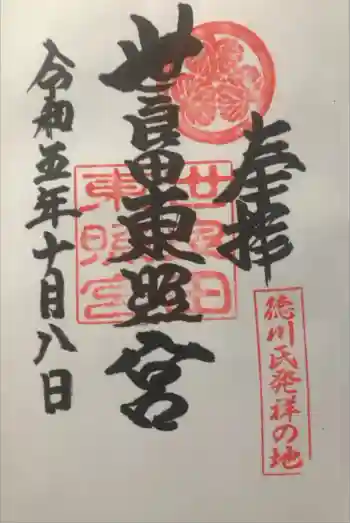 奉拝
徳川氏発祥の地
世良田東照宮
世良田
東照宮
令和五年十月八日